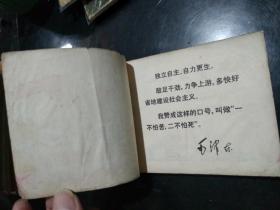 独立自主、自力更生。
鼓足干劲，力争上游，多快好
省地建设社会主义。
我赞成这样的口号，叫做“一
不怕苦，二不怕死”。
毛泽东